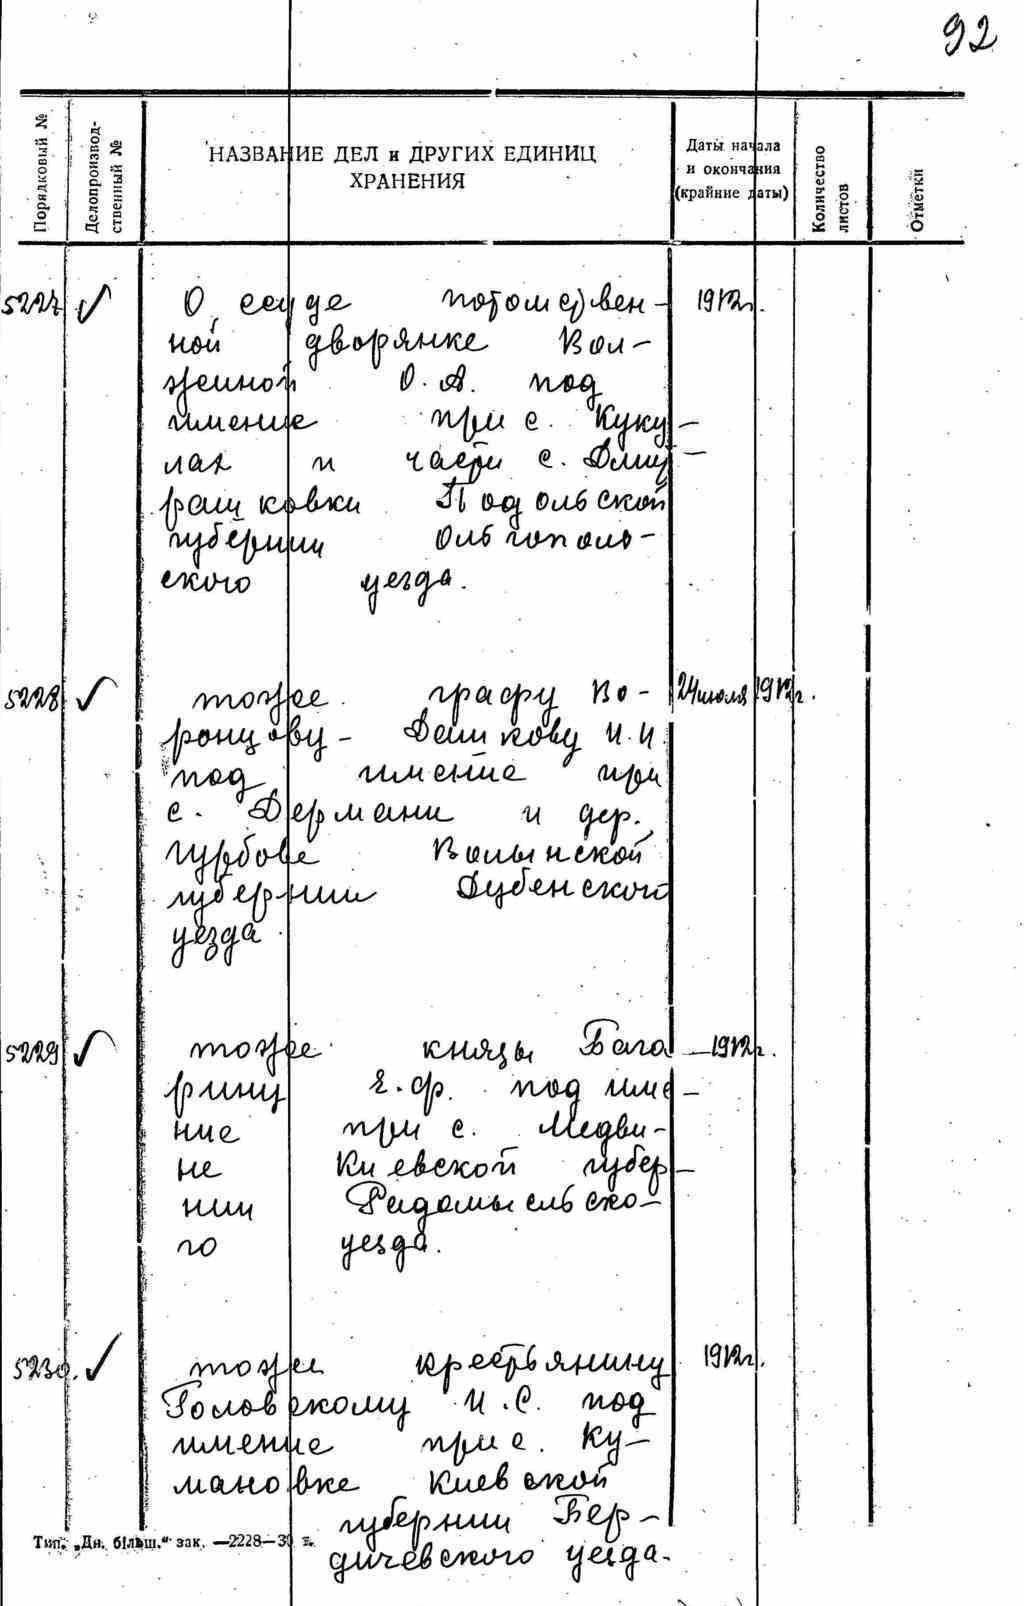 92
Порядковый №
Делопроизвод-
ственный №
НАЗВАНИЕ ДЕЛ и ДРУГИХ ЕДИНИЦ
ХРАНЕНИЯ
Даты начала
и окончания
(крайние даты)
Количество
листов
Отметки
5227 ✓ О ссуде потомствен- 1912г.
ной дворянке Вол-
женной О.А. под
имение при с. Куку-
лах и части с. Дми-
рашковки Подольской
губернии Ольгополь-
ского уезда.
5228 ✓ тоже графу Во- 24 июля 1912г.
ронцову-Дашкову И.И.
под имение при
с. Дермани и дер.
Гурбове Волынской
губернии Дубенского
уезда
5229 ✓ тоже князю Бага- 1912г.
рину Е.Ф. под име-
ние при с. Медви-
не Киевской губер-
нии Радомысльско-
го уезда.
5230. ✓ тоже крестьянину 1912г.
Головскому И.С. под
имение при с. Ку-
мановке Киевской
губернии Бер-
дичевского уезда.
Тип. „Дн. більш." зак. —2228—3